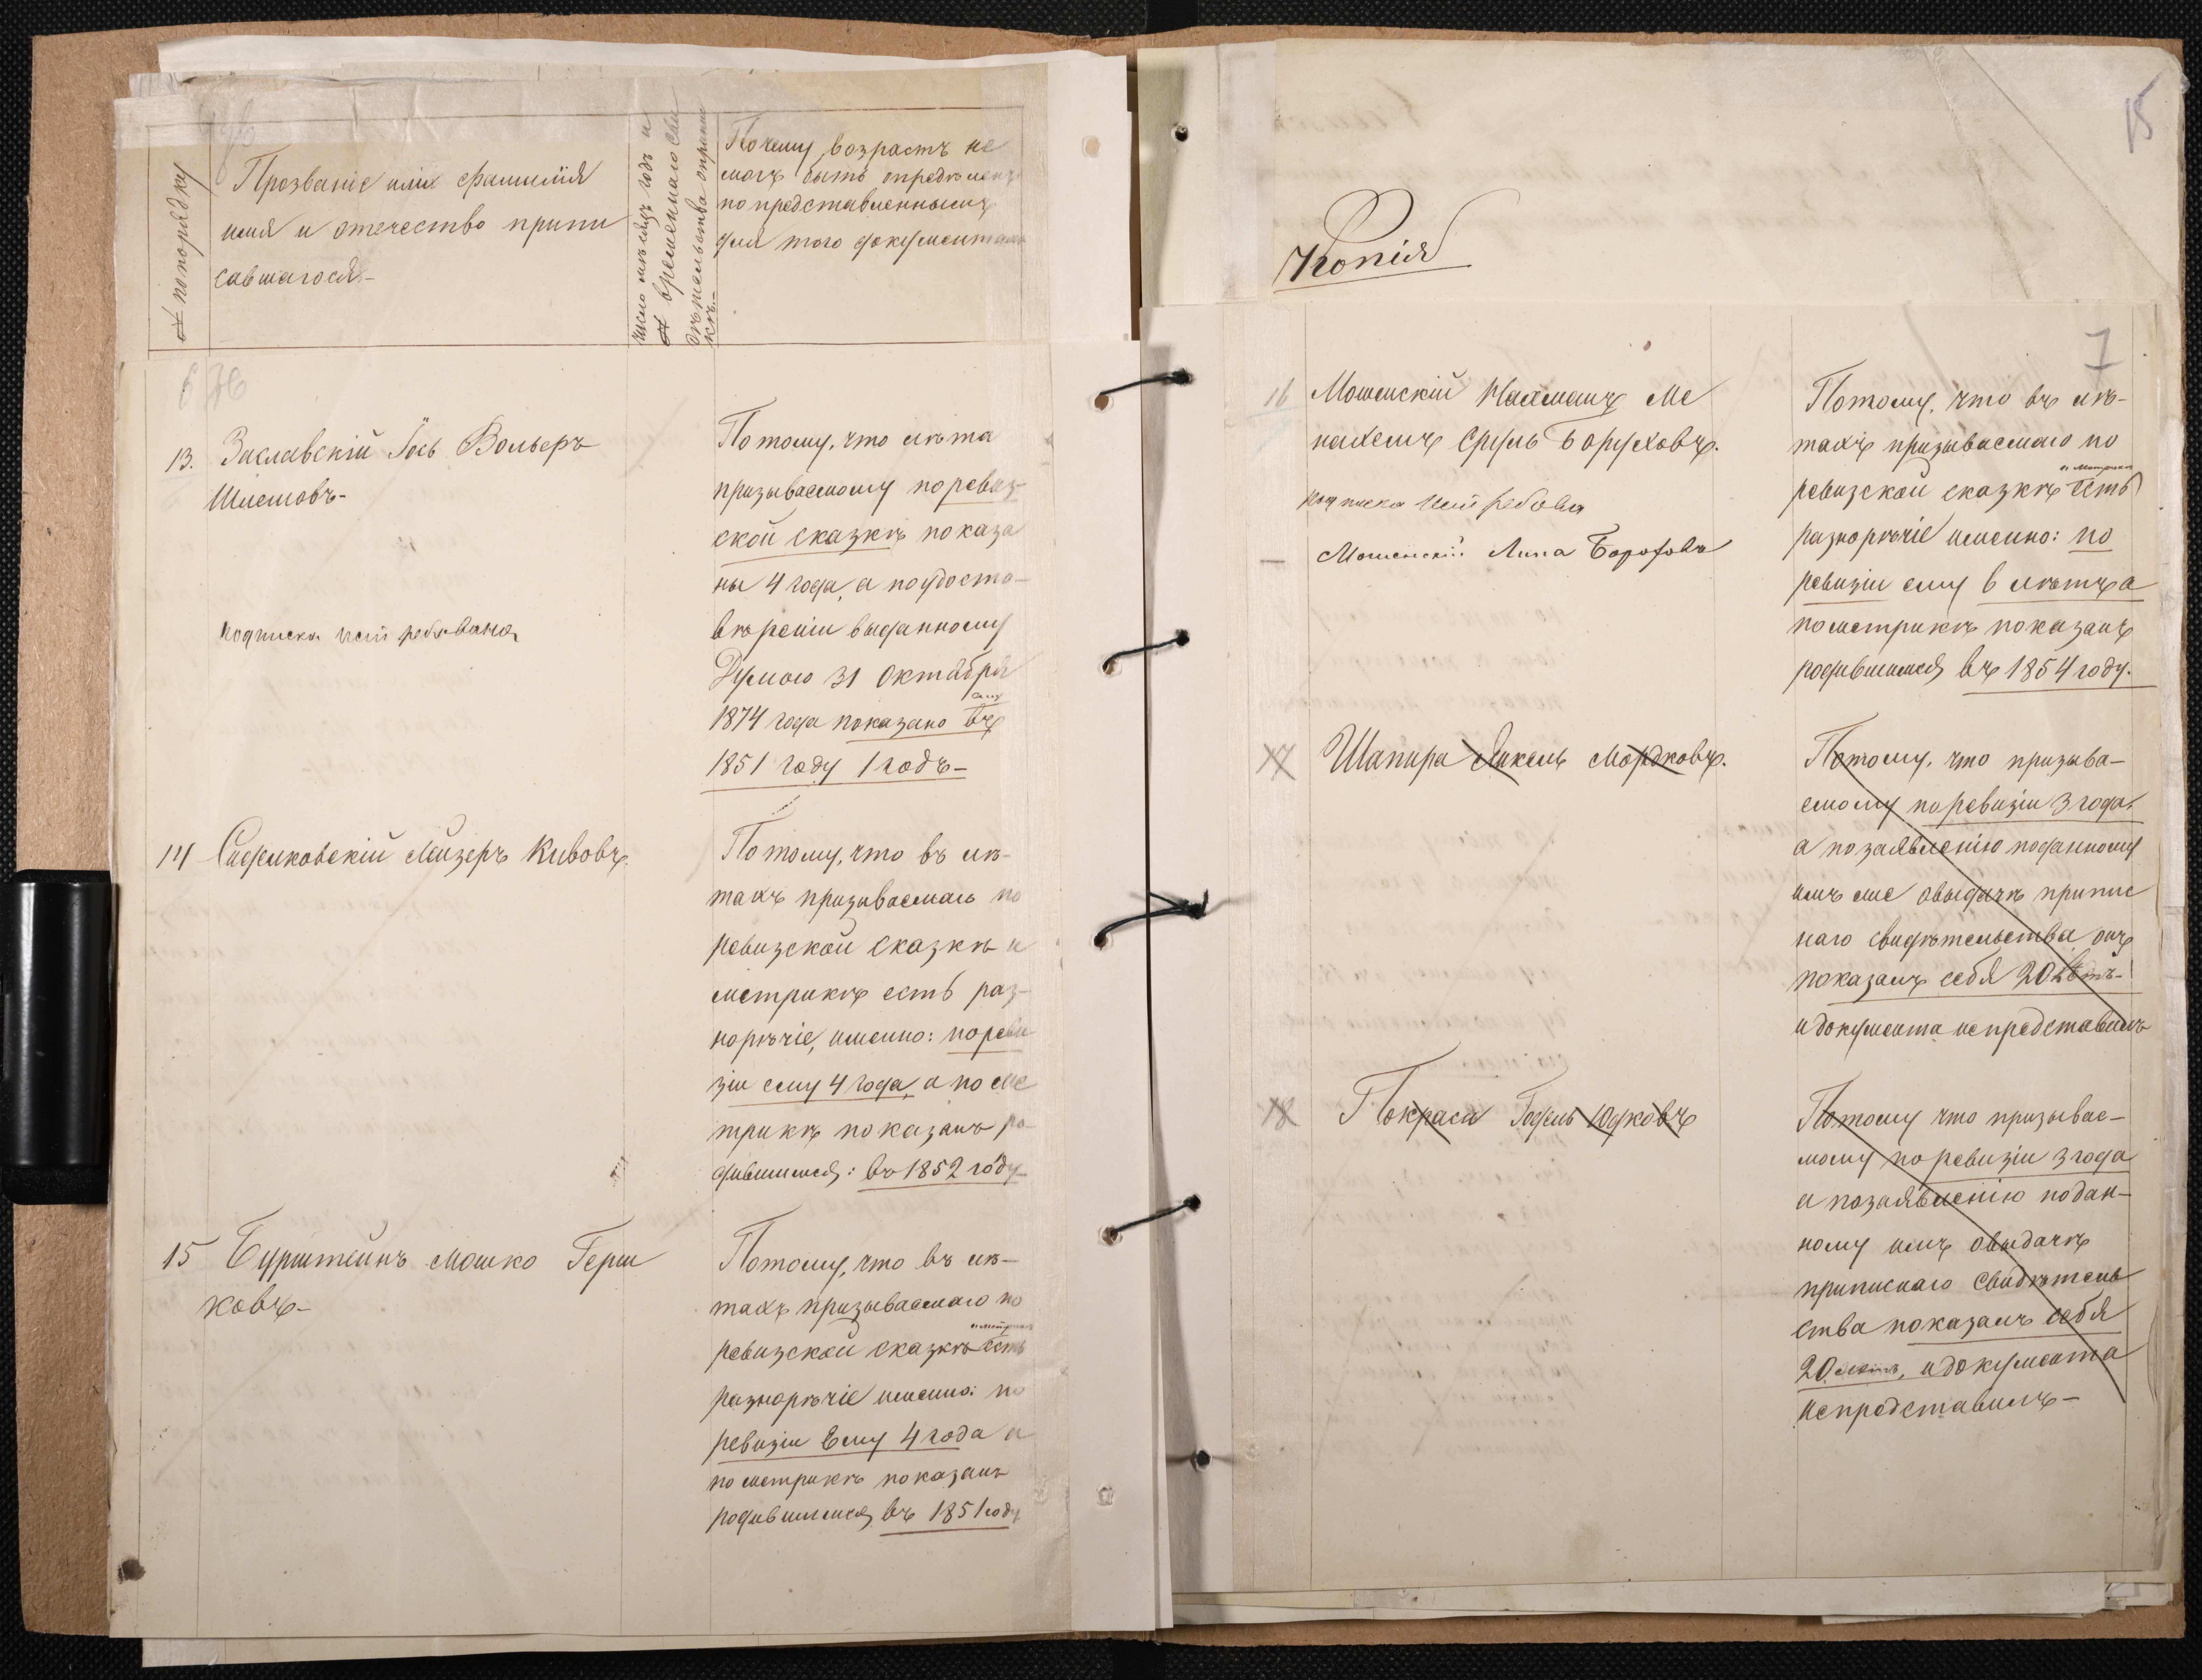 № по порядку
Прозваніе или фамилія
имя и отечество припи
савшагося
Число мѣсяцъ годъ и
№ временнаго сви
дѣтельства о припис
кѣ
Почему возрастъ не
могъ быть опредѣленъ
по представленнымъ
для того документамъ
13. Заславскій Іось Вольеръ
Шлемовъ
подписка
Потому, что лѣта
призываемому по ревиз-
ской сказкѣ показа
ны 4 года, а по удосто-
вѣренiи выданному
Думою 31 Октября
1874 года показано ему въ
1851 году 1 годъ
14 Сидликовскій Лейзеръ Кивовъ.
Потому, что въ лѣ-
тахъ призываемаго по
ревизской сказкѣ и
метрикѣ есть раз-
норѣчіе, именно: по реви
зіи ему 4 года, а по ме
трикѣ показанъ ро-
дившимся: въ 1852 году
15 Бурштейнъ Мошко Герш
ковъ
Потому, что въ лѣ-
тахъ призываемаго по
ревизской сказкѣ и метрикѣ есть
разнорѣчіе именно: по
ревизіи Ему 4 года а
по метрикѣ показанъ
родившимся въ 1851 году
15
Копія
7
16 Мошенскій Нахманъ Ме
нахемъ Сруль Боруховъ.
подписка
Мошенскій Липа Бороховъ
Потому, что въ лѣ-
тахъ призываемаго по
ревизской сказкѣ и метрикѣ есть
разнорѣчіе именно: по
ревизіи ему 6 лѣтъ а
по метрикѣ показанъ
родившимся въ 1854 году.
17 Шапира Янкель Мордковъ.
Потому, что призыва-
емому по ревизіи 3 года,
а по заявленію поданному
имъ мне о выдачѣ припис
наго свидѣтельства, онъ
показалъ себя 20 лѣтъ-
и документа не представилъ
18 Покраса Годель Юдковъ
Потому что призывае-
мому по ревизіи 3 года
а по заявленію подан-
ному имъ о выдачѣ
приписнаго свидѣтель
ства показалъ себя
20 лѣтъ, и документа
не представилъ